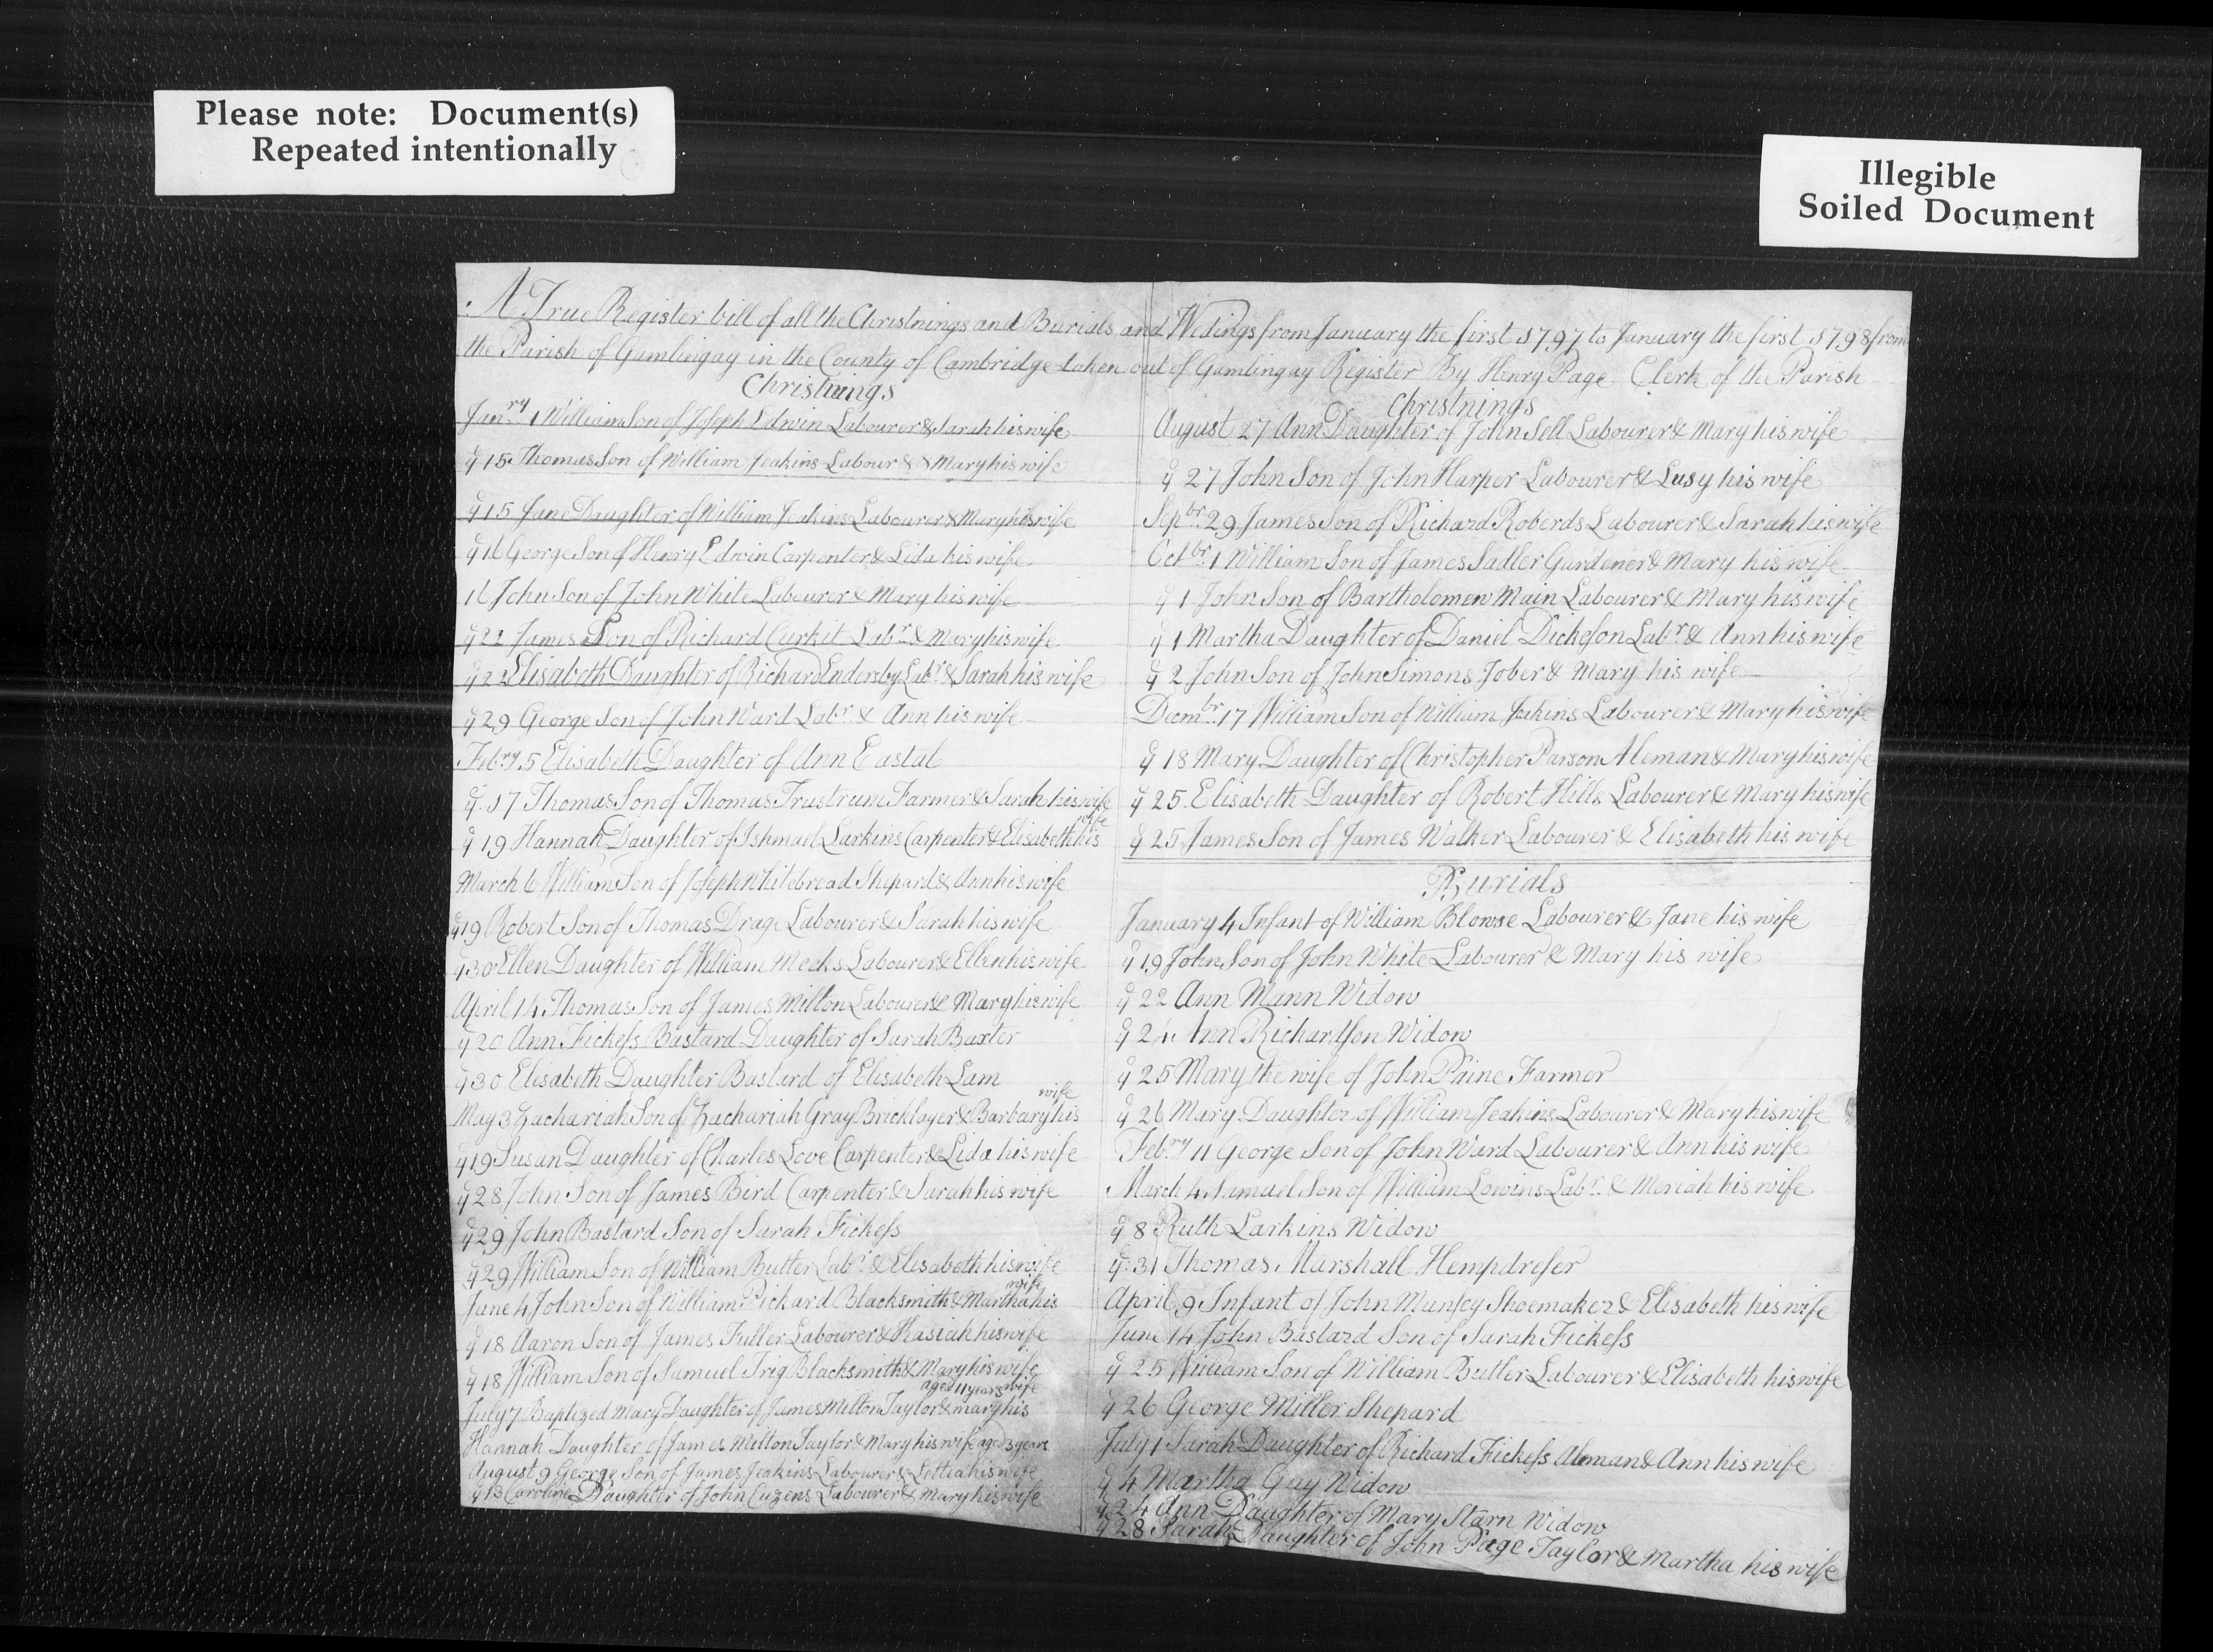 Please note: Document(s)
Repeated intentionally
Illegible
Soiled Document
A True Register bill of all the Christnings and Burials and Wedings from January the first 1797 to January the first 1798 from
the Parish of Gamlingay in the County of Cambridge taken out of Gamlingay Register By Henry Page Clerk of the Parish
Christnings
Janry 1 William Son of Joseph Edwin Labourer & Sarah his wife
ye 15 Thomas Son of William Jeakins Labour & & Mary his wife
ye 15 Jane Daughter of William Jeakins Labourer & Mary his wife
ye 16 George Son of Henry Edwin Carpenter & Lida his wife
16 John Son of John White Labourer & Mary his wife
ye 22 James Son of Richard Curkit Labr & Mary his wife
ye 22 Elisabeth Daughter of Richard Endersby Labr & Sarah his wife
ye 29 George Son of John Ward Labr & Ann his wife
Febry 5 Elisabeth Daughter of Ann Eastal
ye 17 Thomas Son of Thomas Trustrum Farmer & Sarah his wife
ye 19 Hannah Daughter of Ishmael Larkins Carpenter & Elisabeth his wife
March 6 William Son of Joseph Whitebread Shepard & Ann his wife
ye 19 Robert Son of Thomas Drage Labourer & Sarah his wife
ye 30 Ellen Daughter of William Meeks Labourer & Ellen his wife
April 14 Thomas Son of James Milton Labourer & Mary his wife
ye 20 Ann Fickess Bastard Daughter of Sarah Baxter
ye 30 Elisabeth Daughter Bastard of Elisabeth Lam
May 3 Zachariah Son of Zachariah Gray Bricklayer & Barbary his wife
ye 19 Susan Daughter of Charles Love Carpenter & Lida his wife
ye 28 John Son of James Bird Carpenter & Sarah his wife
ye 29 John Bastard Son of Sarah Fickess
ye 29 William Son of William Butler Labr & Elisabeth his wife
June 4 John Son of William Pickard Blacksmith & Martha his wife
ye 18 Aaron Son of James Fuller Labourer & Kasiah his wife
ye 18 William Son of Samuel Trig Blacksmith & Mary his wife
aged 11 years wife
July 7 Baptized Mary Daughter of James Milton Taylor & Mary his
Hannah Daughter of James Milton Taylor & Mary his wife aged 3 years
August 9 George Son of James Jeakins Labourer & Lettia his wife
ye 13 Caroline Daughter of John Cuzens Labourer & Mary his wife
Christnings
August 27 Ann Daughter of John Sell Labourer & Mary his wife
ye 27 John Son of John Harper Labourer & Lusy his wife
Sepbr 29 James Son of Richard Roberds Labourer & Sarah his wife
Octbr 1 William Son of James Sadler Gardener & Mary his wife
ye 1 John Son of Bartholomew Main Labourer & Mary his wife
ye 1 Martha Daughter of Daniel Dickeson Labr & Ann his wife
ye 2 John Son of John Simons Jober & Mary his wife
Decmbr 17 William Son of William Jeakins Labourer & Mary his wife
ye 18 Mary Daughter of Christopher Parson Aleman & Mary his wife
ye 25 Elisabeth Daughter of Robert Hills Labourer & Mary his wife
ye 25 James Son of James Walker Labourer & Elisabeth his wife
Burials
January 4 Infant of William Blowse Labourer & Jane his wife
ye 19 John Son of John White Labourer & Mary his wife
ye 22 Ann Mann Widow
ye 24 Ann Richardson Widow
ye 25 Mary the wife of John Paine Farmer
ye 26 Mary Daughter of William Jeakins Labourer & Mary his wife
Febry 11 George Son of John Ward Labourer & Ann his wife
March 4 Samuel Son of William Lowins Labr & Meriah his wife
ye 8 Ruth Larkins Widow
ye 31 Thomas Marshall Hempdreser
April 9 Infant of John Munsey Shoemaker & Elisabeth his wife
June 14 John Bastard Son of Sarah Fickess
ye 25 William Son of William Butler Labourer & Elisabeth his wife
ye 26 George Miller Shepard
July 1 Sarah Daughter of Richard Fickess Aleman & Ann his wife
ye 4 Martha Guy Widow
ye 24 Ann Daughter of Mary Starn Widow
ye 28 Sarah Daughter of John Page Taylor & Martha his wife